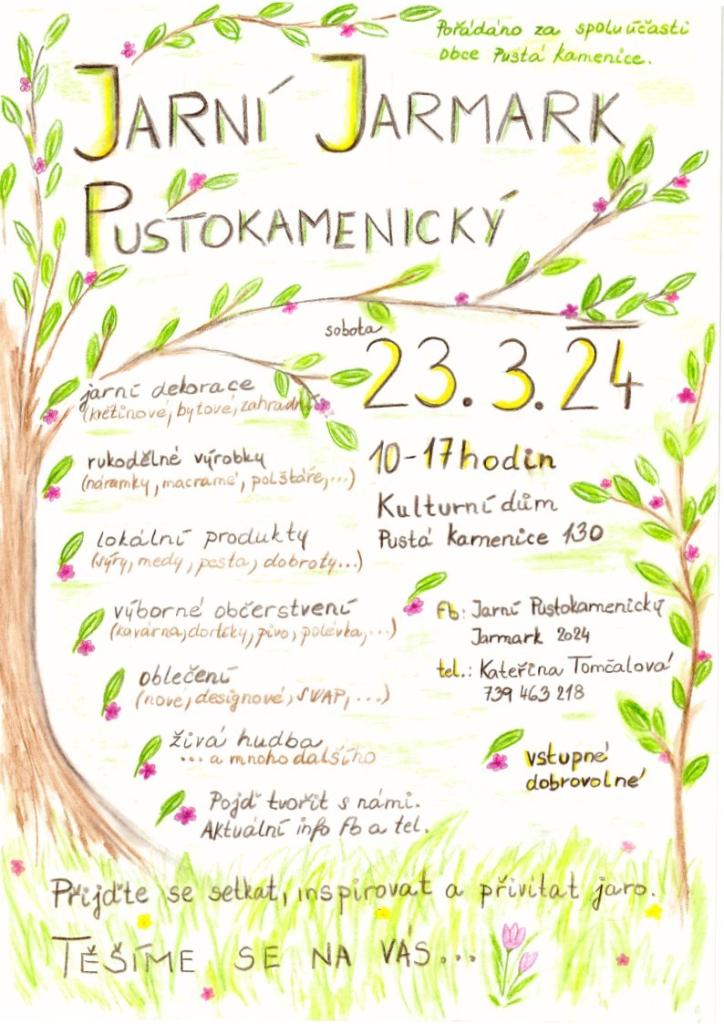 Pořádáno za spoluúčasti
obce Pustá Kamenice.
JARNÍ JARMARK
PUSTOKAMENICKÝ
sobota
23.3.24
10-17 hodin
Kulturní dům
Pustá Kamenice 130
jarní dekorace
(květinové, bytové, zahradní)
rukodělné výrobky
(náramky, macramé, polštáře,...)
lokální produkty
(sýry, medy, pesta, dobroty...)
výborné občerstvení
(kavárna, dortíky, pivo, polévka,...)
oblečení
(nové, designové, SWAP,...)
živá hudba
... a mnoho dalšího
Pojď tvořit s námi.
Aktuální info Fb a tel.
Fb: Jarní Pustokamenický
Jarmark 2024
tel.: Kateřina Tomčalová
739 463 218
vstupné
dobrovolné
Přijďte se setkat, inspirovat a přivítat jaro.
TĚŠÍME SE NA VÁS...